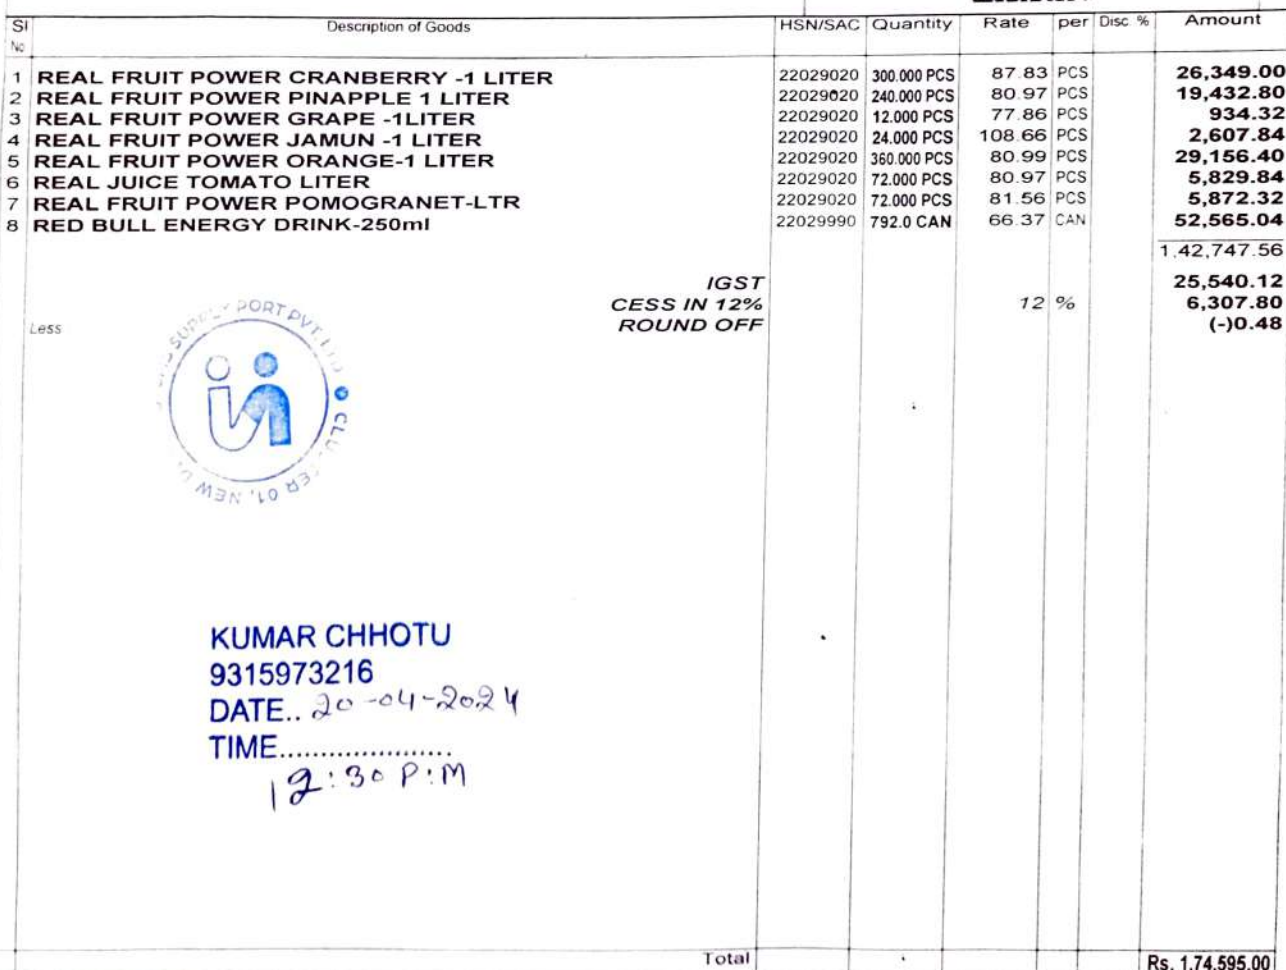 Sl No Description of Goods HSN/SAC Quantity Rate per Disc. % Amount
1 REAL FRUIT POWER CRANBERRY -1 LITER 22029020 300.000 PCS 87.83 PCS 26,349.00
2 REAL FRUIT POWER PINAPPLE 1 LITER 22029020 240.000 PCS 80.97 PCS 19,432.80
3 REAL FRUIT POWER GRAPE -1LITER 22029020 12.000 PCS 77.86 PCS 934.32
4 REAL FRUIT POWER JAMUN -1 LITER 22029020 24.000 PCS 108.66 PCS 2,607.84
5 REAL FRUIT POWER ORANGE-1 LITER 22029020 360.000 PCS 80.99 PCS 29,156.40
6 REAL JUICE TOMATO LITER 22029020 72.000 PCS 80.97 PCS 5,829.84
7 REAL FRUIT POWER POMOGRANET-LTR 22029020 72.000 PCS 81.56 PCS 5,872.32
8 RED BULL ENERGY DRINK-250ml 22029990 792.0 CAN 66.37 CAN 52,565.04
1,42,747.56
IGST 25,540.12
CESS IN 12% 12 % 6,307.80
Less ROUND OFF (-)0.48
PORT PVT. LTD
01, NEW
KUMAR CHHOTU
9315973216
DATE.. 20-04-2024
TIME.....................
12:30 P:M
Total Rs. 1,74,595.00